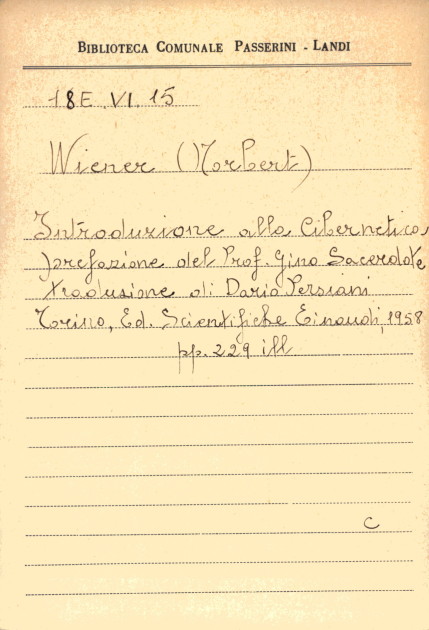 BIBLIOTECA COMUNALE PASSERINI - LANDI
18E.VI.15
Wiener (Norbert)
Introduzione alla Cibernetica,
prefazione del Prof. Gino Sacerdote
traduzione di Dario Persiani
Torino, Ed. Scientifiche Einaudi, 1958
pp. 229 ill
C